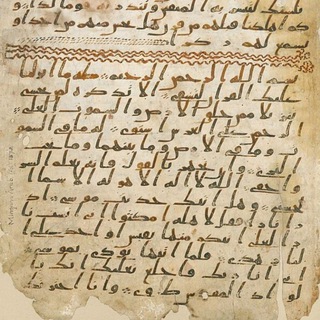 بلسنك لتبشر به المتقين وتنذر به قوما لدا و
كم اهلكنا قبلهم من قرن هل تحس منهم من احد او
تسمع لهم ركزا
بسم الله الرحمن الرحيم طه ما انزلنا
عليك القرن لتشقى الا تذكرة لمن يخشى
تنزيلا ممن خلق الارض والسموت العلى
الرحمن على العرش استوى له ما في السمو
ت وما في الارض وما بينهما وما تحت
الثرى وان تجهر بالقول فانه يعلم السر
واخفى الله لا اله الا هو له الاسما ا
لحسنى وهل اتيك حديث موسى اذ
را نارا فقال لاهله امكثوا اني انست نا
را لعلي اتيكم منها بقبس او اجد على ا
لنار هدى فلما اتيها نودي يموسى
اني انا ربك فاخلع نعليك انك با
لواد المقدس طوى وانا اخترتك